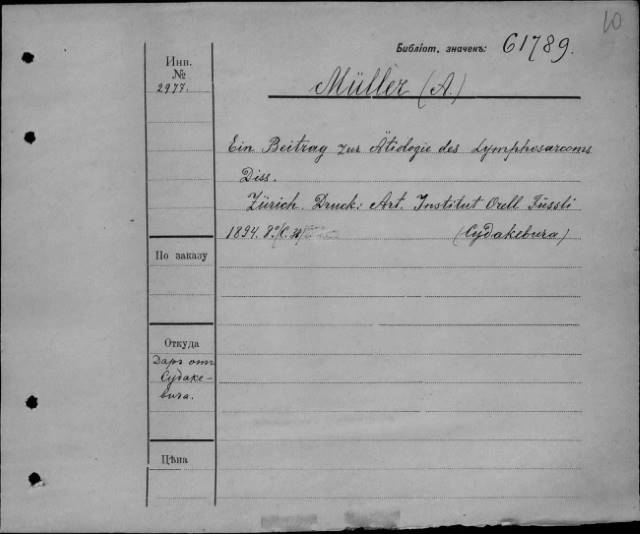 10
Библіот. значекъ: 61789.
Инв.
№
2977.
Müller (A.)
Ein Beitrag zur Ätiologie des Lymphosarcoms
Diss.
Zürich. Druck: Art. Institut Orell Füssli
1894. 8º/C. 38/
(Судакевича)
По заказу
Откуда
Даръ отъ
Судаке-
вича.
Цѣна